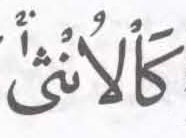 كَالْاُنْثٰىۚ